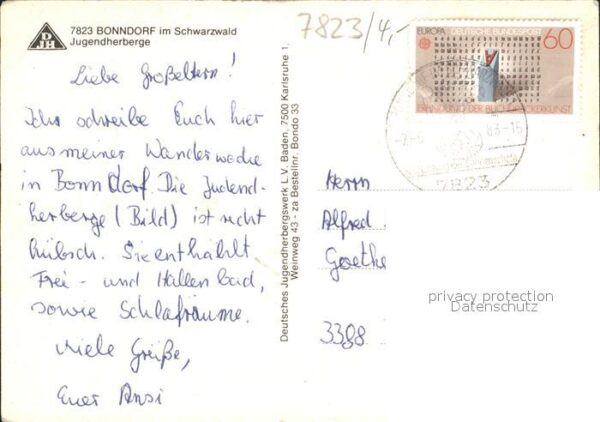 DJH
7823 BONNDORF im Schwarzwald
Jugendherberge
Liebe Großeltern!
Ich schreibe Euch hier
aus meiner Wanderwoche
in Bonndorf. Die Jugend-
herberge (Bild) ist recht
hübsch. Sie enthählt
Frei- und Hallenbad,
sowie Schlafräume.
Viele Grüße,
Euer Ansi
Deutsches Jugendherbergswerk L.V. Baden, 7500 Karlsruhe 1,
Weinweg 43 - za Bestellnr. Bondo 33
7823/4,-
EUROPA DEUTSCHE BUNDESPOST 60
ERFINDUNG DER BUCHDRUCKERKUNST
83-15
7823
Herrn
Alfred
Goethe
3388
privacy protection
Datenschutz